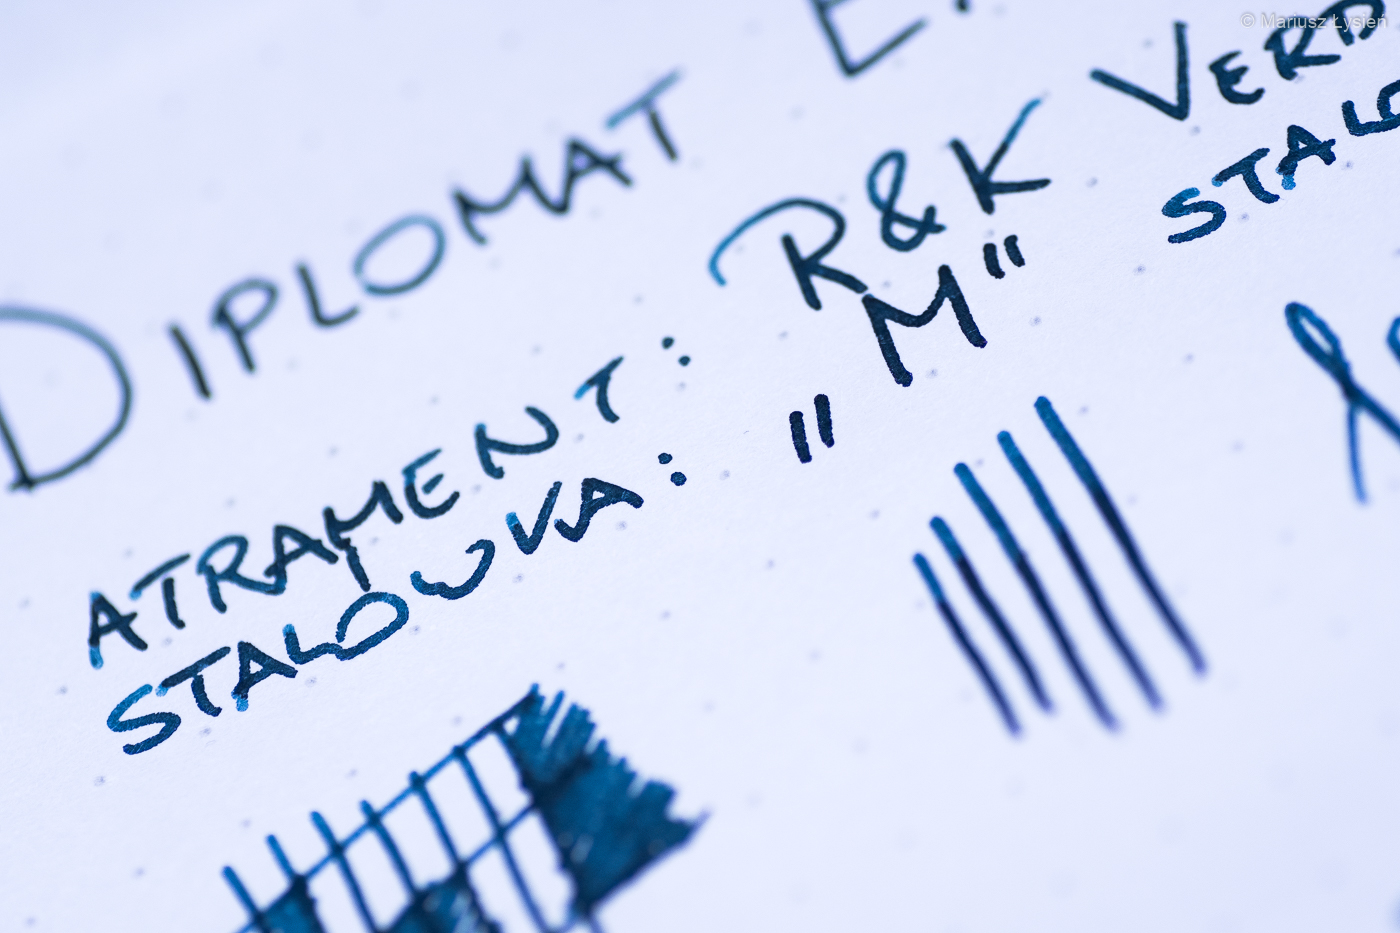 © Mariusz Łysień
DIPLOMAT
ATRAMENT: R&K VERD
STALOWA: "M" STALO